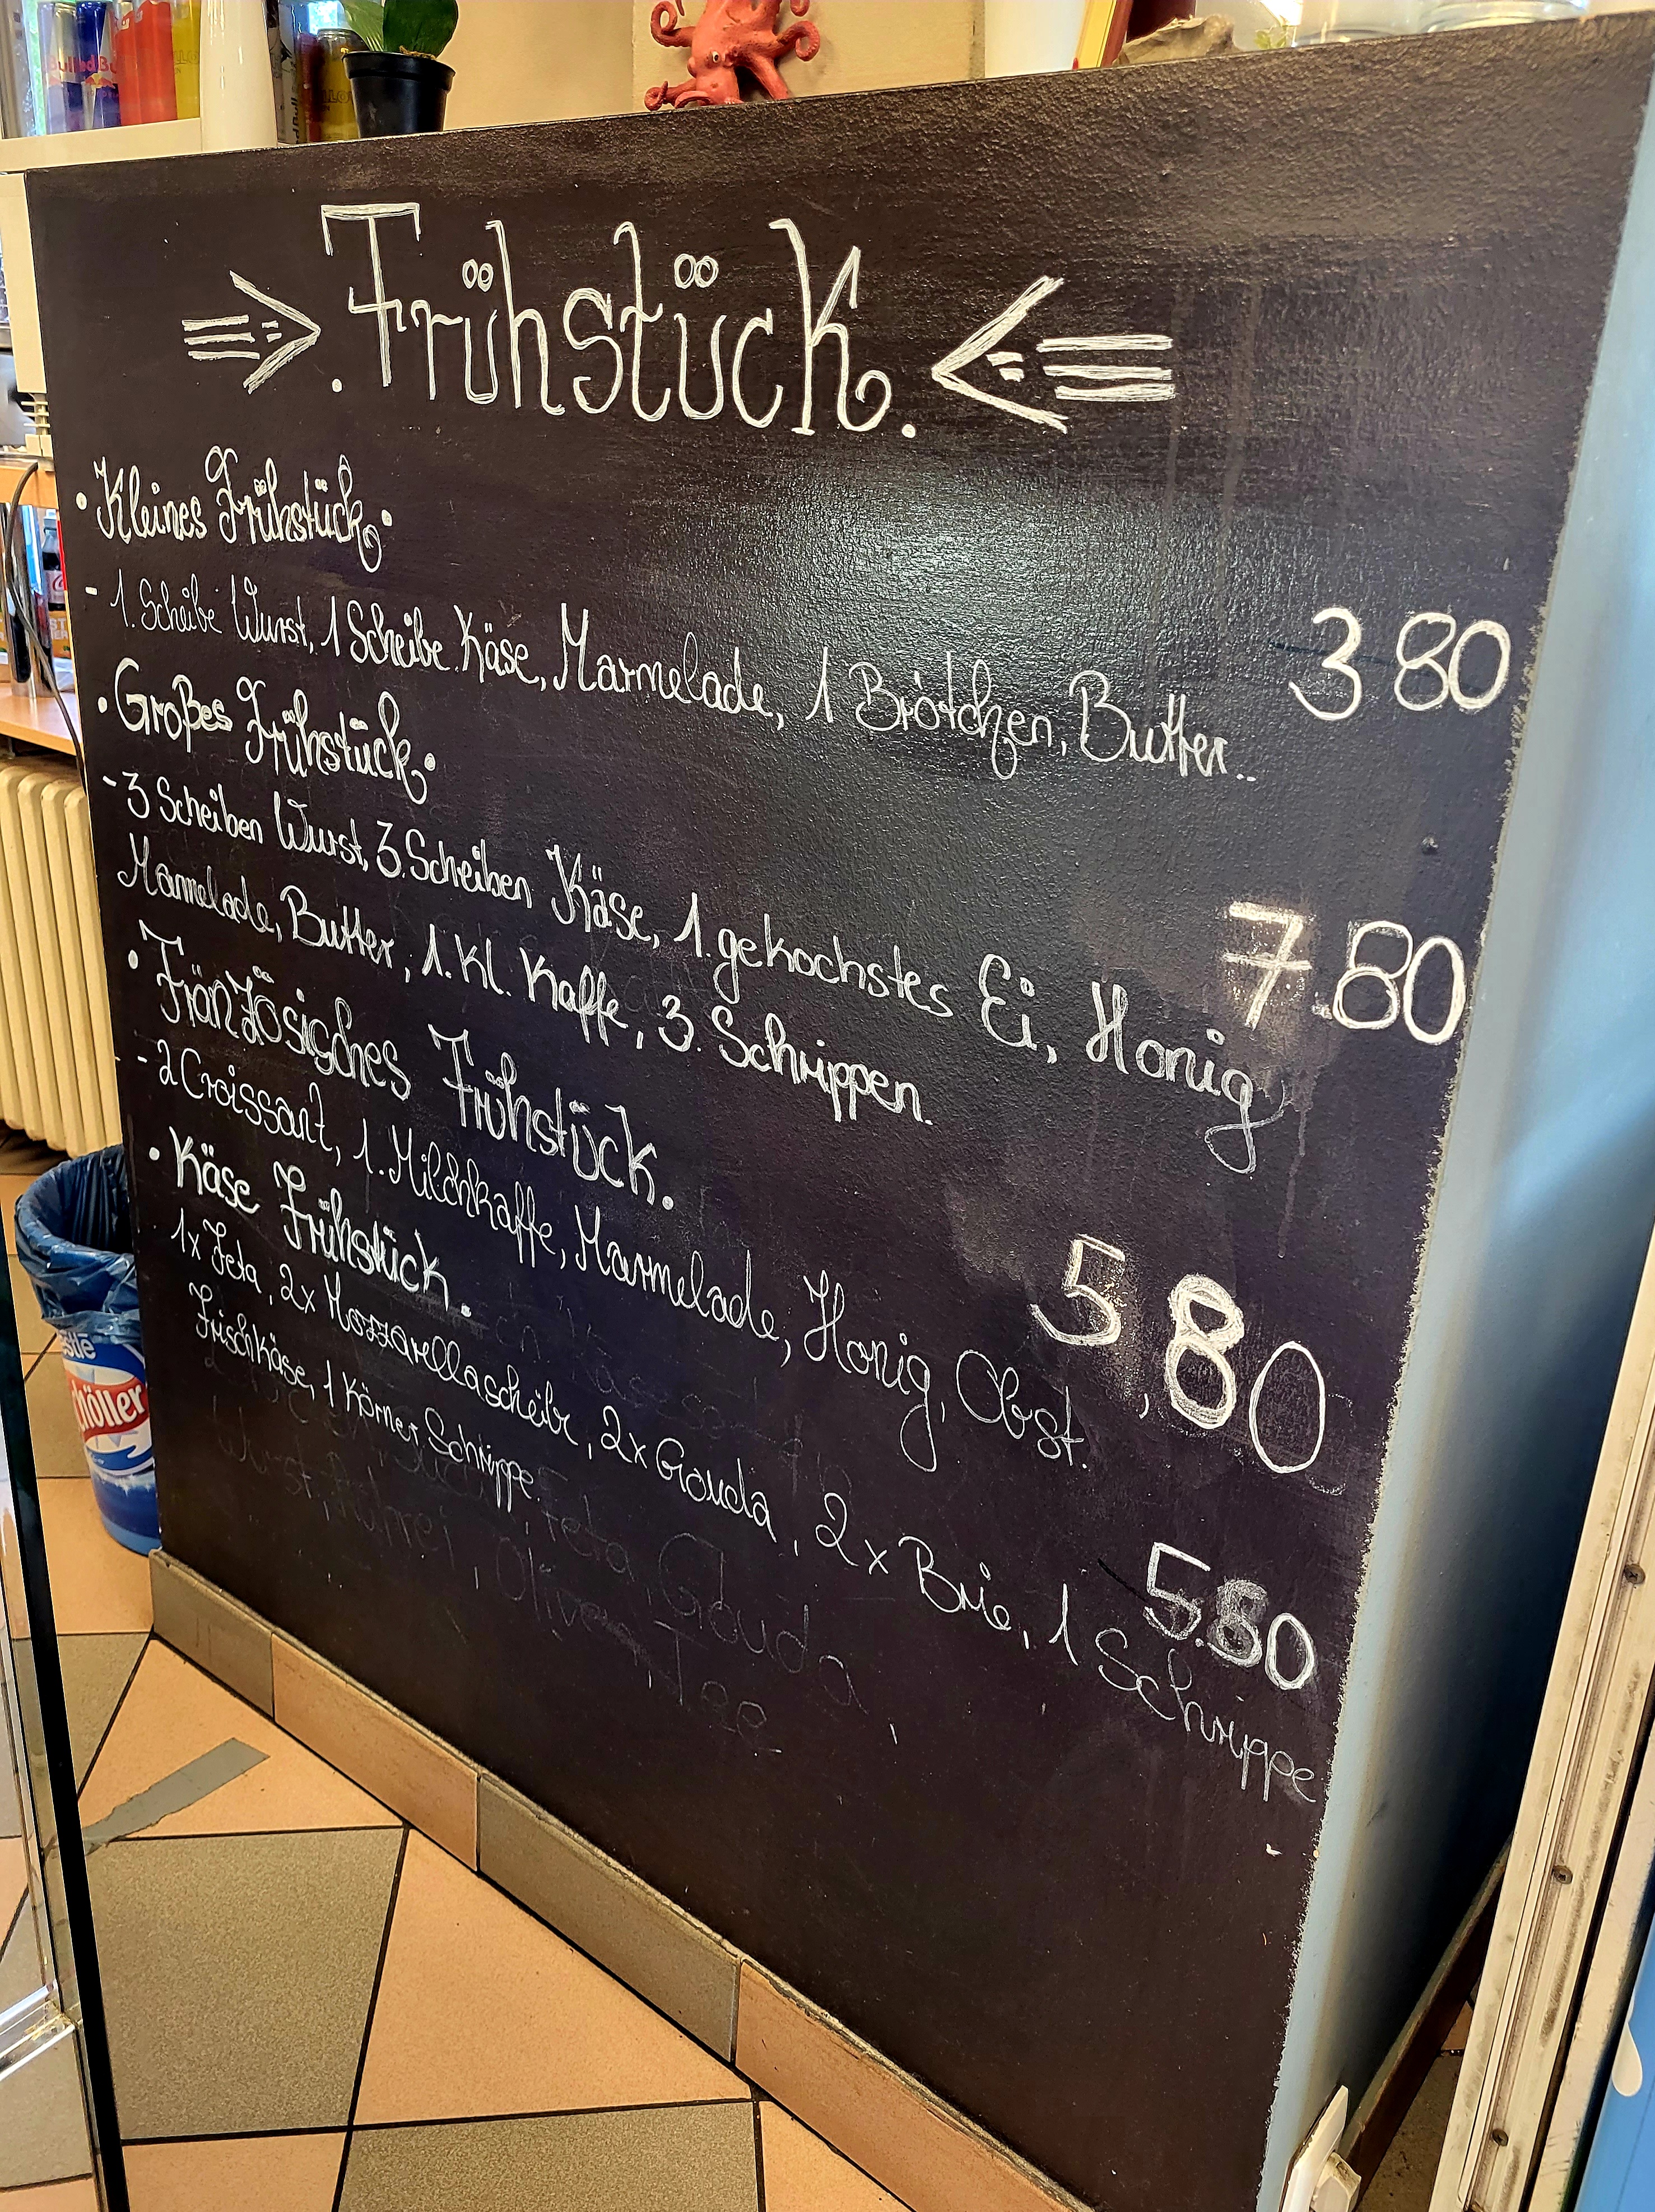 Red Bull
⇒ .Frühstück. ⇐
• Kleines Frühstück •
- 1. Scheibe Wurst, 1 Scheibe Käse, Marmelade, 1 Brötchen, Butter.. 3 80
• Großes Frühstück •
- 3 Scheiben Wurst, 3. Scheiben Käse, 1. gekochstes Ei, Honig 7.80
Marmelade, Butter, 1. Kl. Kaffe, 3. Schrippen.
• Fränzösisches Frühstück.
- - 2 Croissant, 1. Milchkaffe, Marmelade, Honig, Obst. 5,80
• Käse Frühstück.
1x Feta, 2x Mozzarellascheibe, 2x Gouda, 2x Brie, 1 Schrippe 5.80
Frischkäse, 1 Körner Schrippe.
Feta, Gouda,
Wurst, Rührei, Oliven, Tee